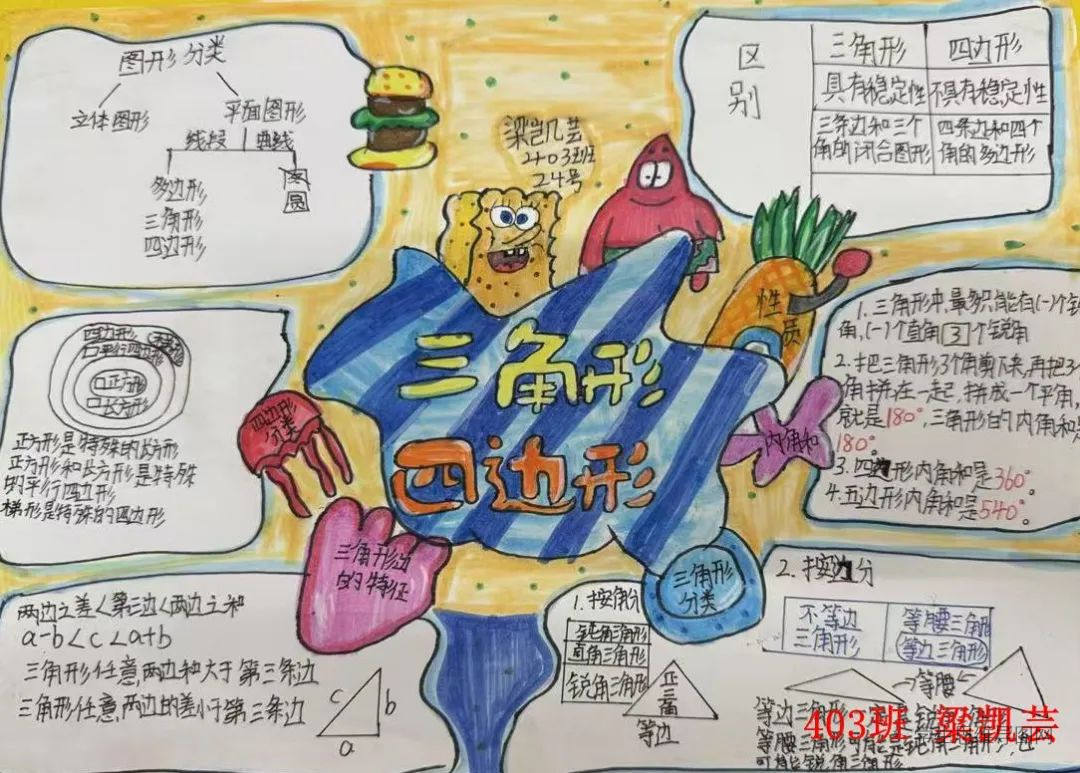 图形分类
立体图形
平面图形
线段 曲线
多边形
三角形
四边形
圆
梁凯芸
403班
24号
区别
三角形 四边形
具有稳定性 不具有稳定性
三条边和三个
角的闭合图形
四条边和四个
角的多边形
性质
1.三角形中,最多只能有(一)个钝
角,(一)个直角 3 个锐角
2.把三角形3个角剪下来,再把3
角拼在一起,拼成一个平角,
就是180°,三角形的内角和是
180°。
3.四边形内角和是360°。
4.五边形内角和是540°。
内角和
三角形
四边形
四边形
平行四边形
正方形
长方形
正方形是特殊的长方形
正方形和长方形是特殊
的平行四边形
梯形是特殊的四边形
四边形
分类
三角形边
的特征
两边之差<第三边<两边之和
a-b<c<a+b
三角形任意两边和大于第三条边
三角形任意两边的差小于第三条边
c
b
a
三角形
分类
1.按角分
钝角三角形
直角三角形
锐角三角形
正三角
等边
2.按边分
不等边
三角形
等腰三角形
等边三角形
→等腰←
等边三角形
等腰三角形可能是钝角三角形,也
可能是锐角三角形。
403班 梁凯芸